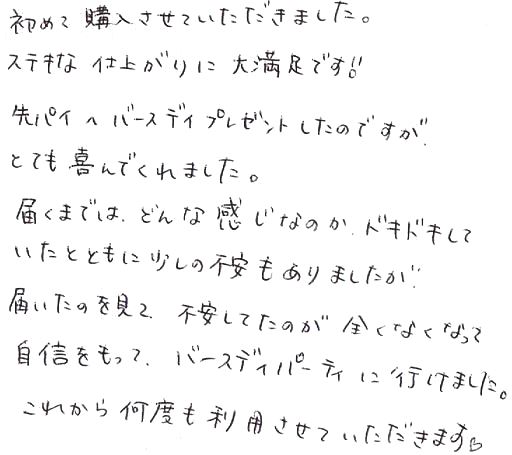 初めて購入させていただきました。
ステキな仕上がりに大満足です!!
先パイへバースディプレゼントしたのですが、
とても喜んでくれました。
届くまでは、どんな感じなのか、ドキドキして
いたとともに少しの不安もありましたが、
届いたのを見て、不安してたのが全くなくなって
自信をもって、バースディパーティに行けました。
これから何度も利用させていただきます♡